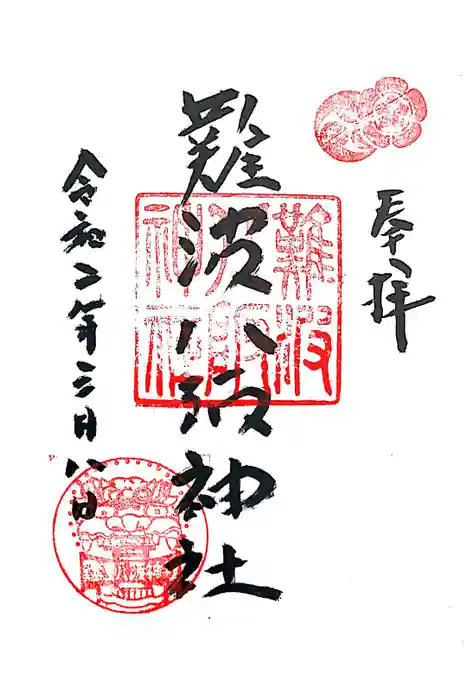 奉拝
難波八阪神社
難波
八阪
神社
令和二年三月八日